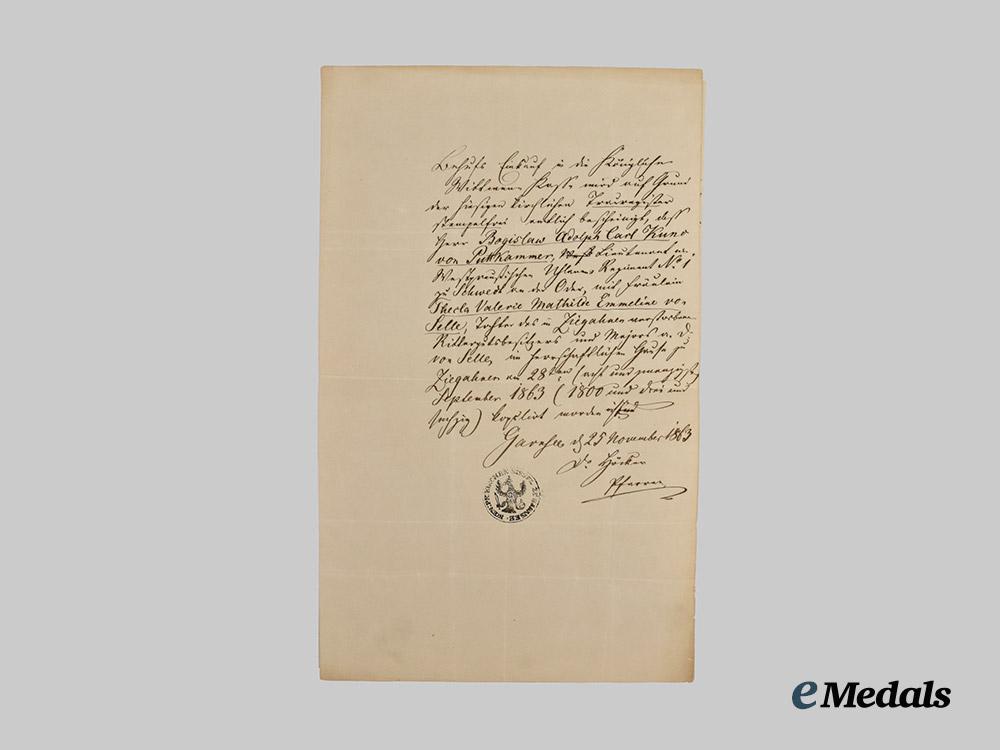 Behufs Einkauf in die Königliche
Wittwen-Kasse wird auf Grund
der hiesigen kirchlichen Trauregister
stempelfrei amtlich bescheinigt, daß
Herr Bogislaw Adolph Carl Kuno
von Puttkammer, Lieutenant im
Westpreußischen Uhlanen Regiment No 1
zu Schwedt an der Oder, mit Fräulein
Thecla Valerie Mathilde Emmeline von
Selle, Tochter des in Ziegahnen verstorbenen
Rittergutsbesitzers und Majors a. D.
von Selle, im herrschaftlichen Hause zu
Ziegahnen am 28ten (acht und zwanzigsten)
September 1863 (1800 und drei und
sechzig) kopulirt worden
d 25 November 1863
Dr
Pfarrer
eMedals